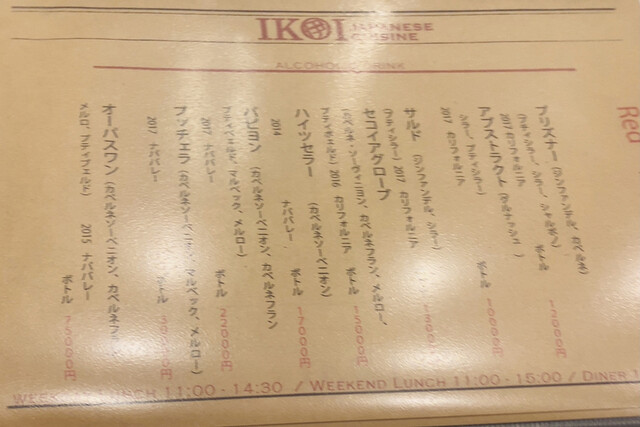 IKOI JAPANESE CUISINE
ALCOHOL DRINK
Red
プリズナー (ジンファンデル、カベルネ)
(プティシラー、シラー、シャルボノ) ボトル 12000円
2017 カリフォルニア
アブストラクト (グルナッシュ、
シラー、プティシラー) ボトル 10000円
2017 カリフォルニア
サルド (ジンファンデル、シラー)
(プティシラー) 2017 カリフォルニア
セコイアグローブ
(カベルネ・ソーヴィニヨン、カベルネフラン、メルロー、
プティヴェルド) 2016 カリフォルニア ボトル 15000円
ハイツセラー (カベルネソーベニオン)
2014 ナパバレー ボトル 17000円
パピヨン (カベルネソーベニオン、カベルネフラン
プティベェルド、マルベック、メルロー)
2017 ナパバレー ボトル 22000円
プッチェラ (カベルネソーベニオン、マルベック、メルロー)
2017 ナパバレー ボトル
オーパスワン (カベルネソーベニオン、カベルネフラン
メルロ、プティブェルド) 2015 ナパバレー ボトル 75000円
LUNCH 11:00 - 14:30 / WEEKEND LUNCH 11:00 - 15:00 / DINER